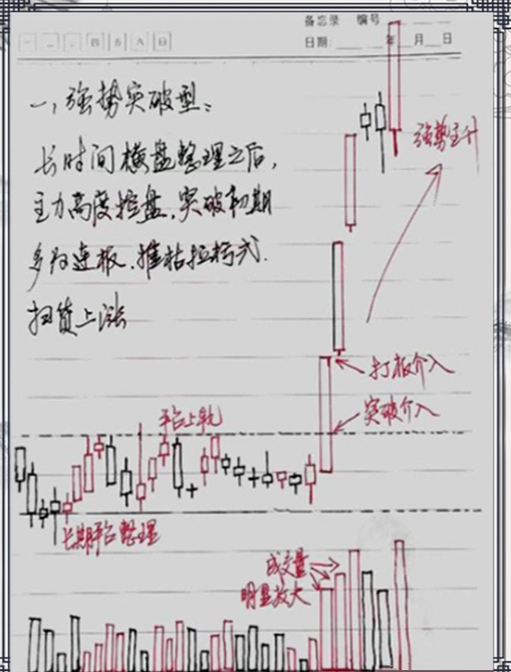 备忘录 编号
日期: 年 月 日
一、强势突破型:
长时间横盘整理之后,
主力高度控盘,突破初期
多为连板,推枯拉朽式
扫货上涨
强势主升
打板介入
突破介入
平台上轨
长期平台整理
成交量
明显放大